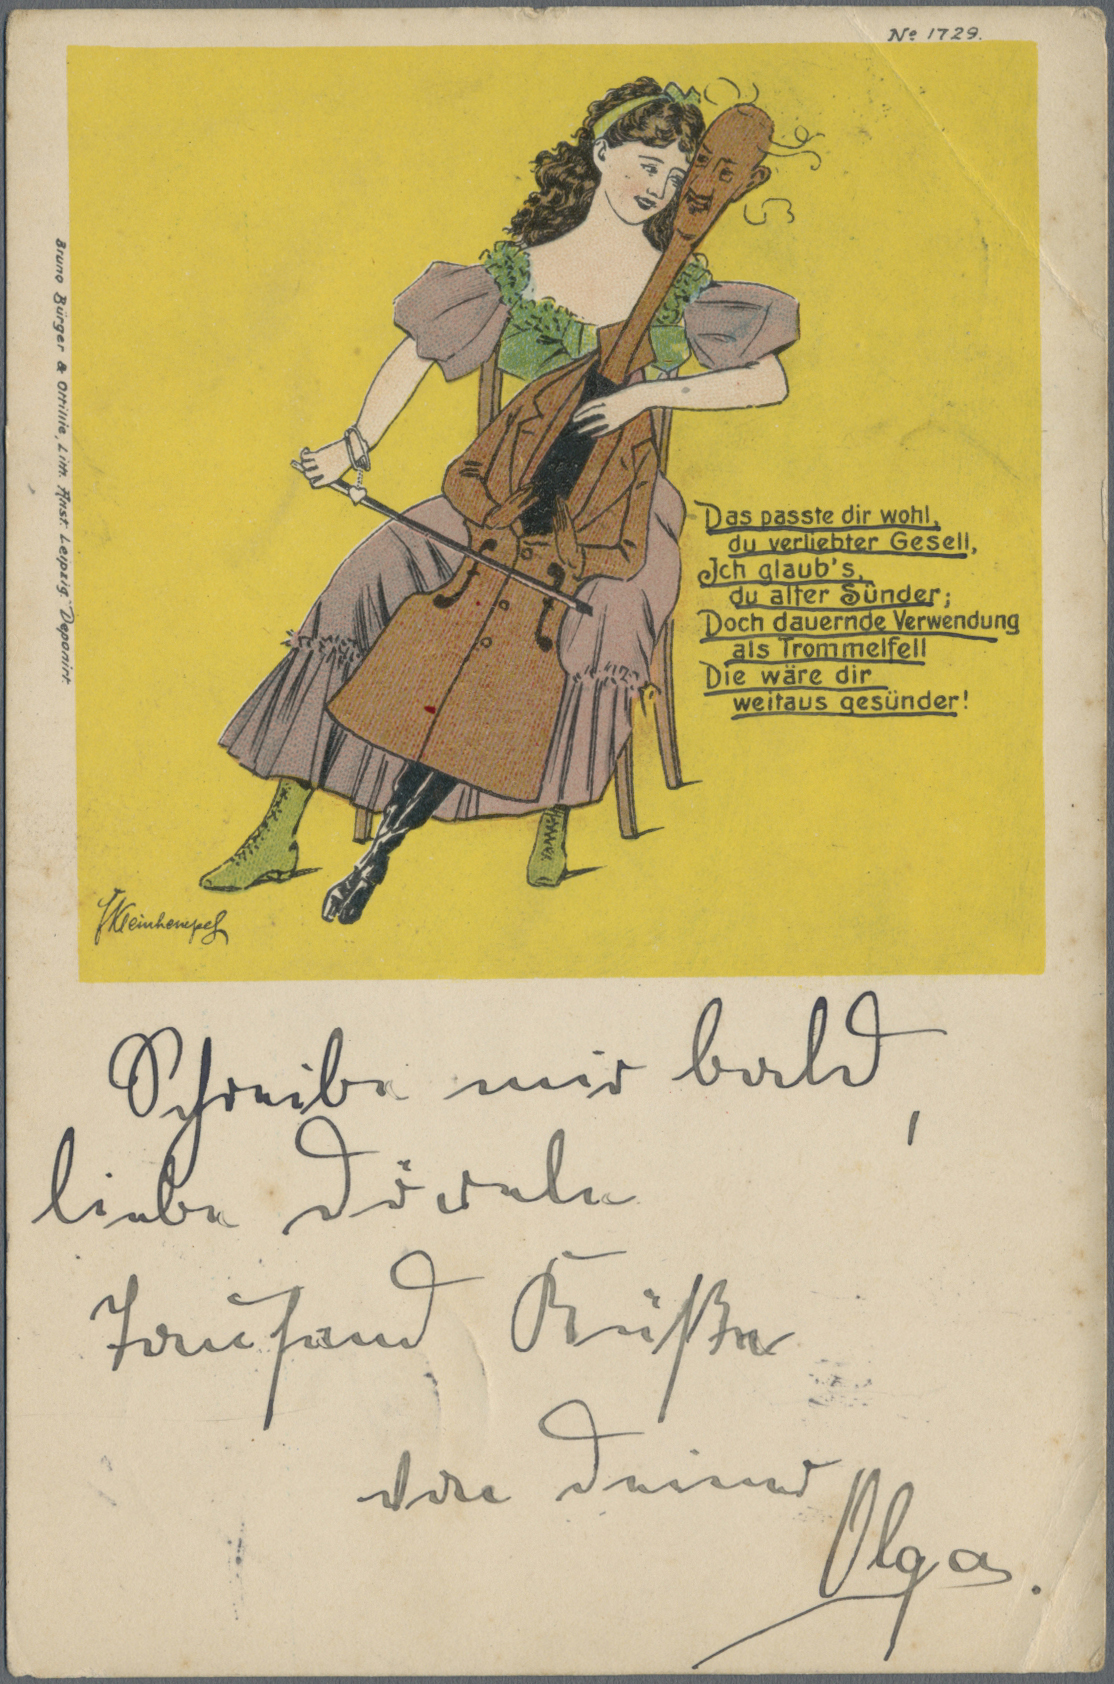 No 1729.
Bruno Bürger & Ottillie, Lith. Anst. Leipzig. Deponirt.
Das passte dir wohl,
du verliebter Gesell,
Ich glaub's,
du alter Sünder;
Doch dauernde Verwendung
als Trommelfell
Die wäre dir
weitaus gesünder!
FKleinhempel
Schreibe mir bald,
liebe Dörele
Tausend Küße
von Deiner
Olga.